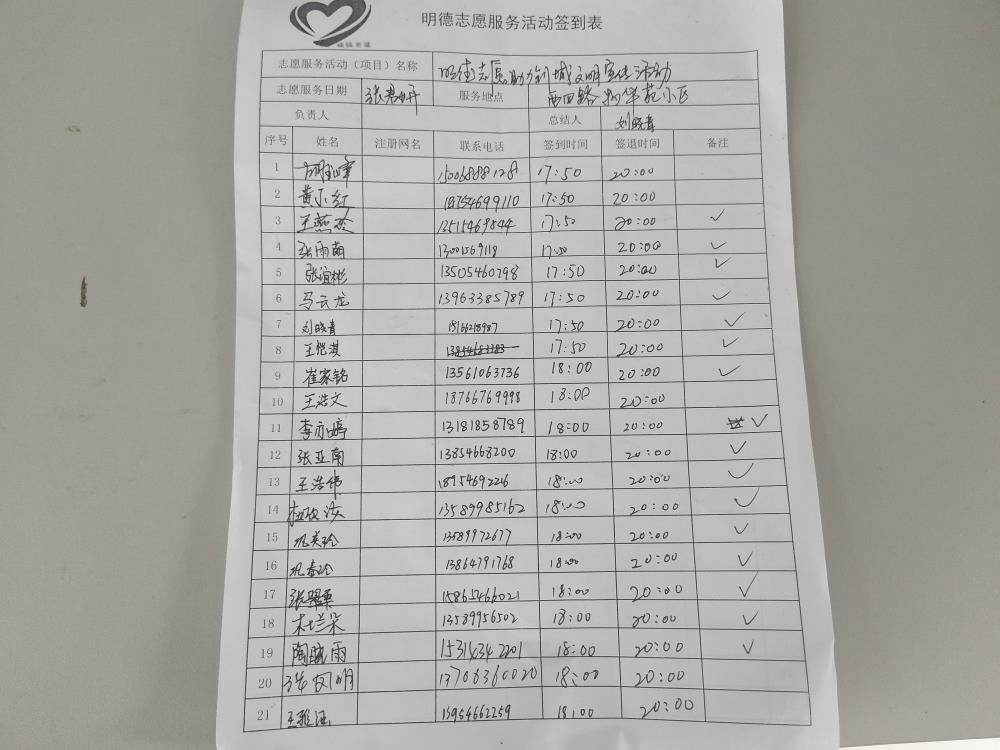 明德志愿服务活动签到表
志愿服务活动（项目）名称 明德志愿助力创城文明宣传活动
志愿服务日期 服务地点 西四路 小区
负责人 总结人 刘晓青
序号 姓名 注册网名 联系电话 签到时间 签退时间 备注
1 15006888128 17:50 20:00
2 黄小红 18754699110 17:50 20:00
3 王燕 17:50 20:00 ✓
4 张雨萌 17:50 20:00 ✓
5 张宜彬 13505460798 17:50 20:00 ✓
6 马云龙 13963385789 17:50 20:00 ✓
7 刘晓青 17:50 20:00 ✓
8 17:50 20:00 ✓
9 崔家铭 13561063736 18:00 20:00 ✓
10 王浩文 18766769998 18:00 20:00
11 李亦婷 13181858789 18:00 20:00 ✓
12 张亚南 13854668200 18:00 20:00 ✓
13 王浩伟 18:00 20:00 ✓
14 13589985162 18:00 20:00 ✓
15 13589972677 18:00 20:00 ✓
16 13864791768 18:00 20:00 ✓
17 15865466021 18:00 20:00 ✓
18 杜兰朵 13589956502 18:00 20:00 ✓
19 陶晓雨 15314342201 18:00 20:00 ✓
20 13706360020 18:00 20:00
21 13954662259 18:00 20:00